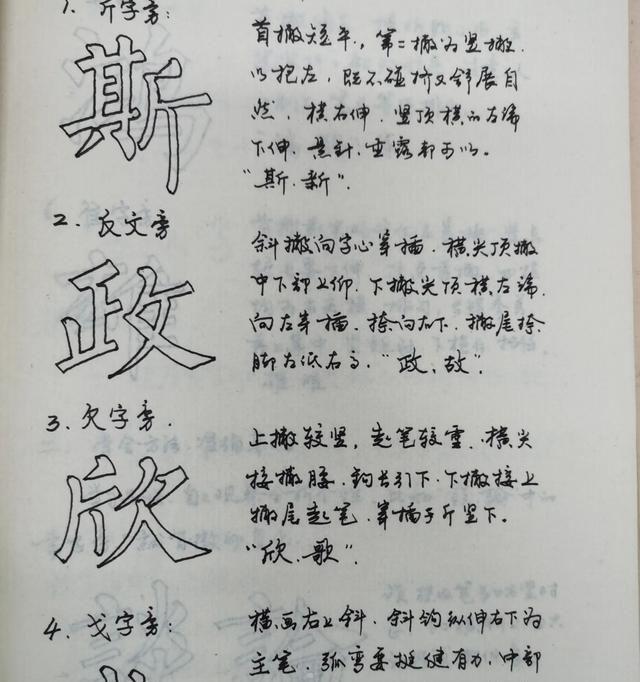 1. 斤字旁：
斯
首撇短平，第二撇为竖撇，
以抱左，既不碰挤又舒展自
然，横右伸，竖顶横的左端
下伸，悬针、垂露都可以。
“斯、新”.
2. 反文旁
政
斜撇向字心穿插，横尖顶撇
中下部上仰，下撇尖顶横左端，
向左穿插，捺向右下，撇尾捺
脚左低右高，“政、故”.
3. 欠字旁.
欣
上撇较竖，起笔较重，横尖
接撇腰，钩长引下，下撇接上
撇尾起笔，穿插于斤竖下。
“欣、歌”.
4. 戈字旁：
横画右上斜，斜钩纵伸右下为
主笔，弧弯要挺健有力，中部